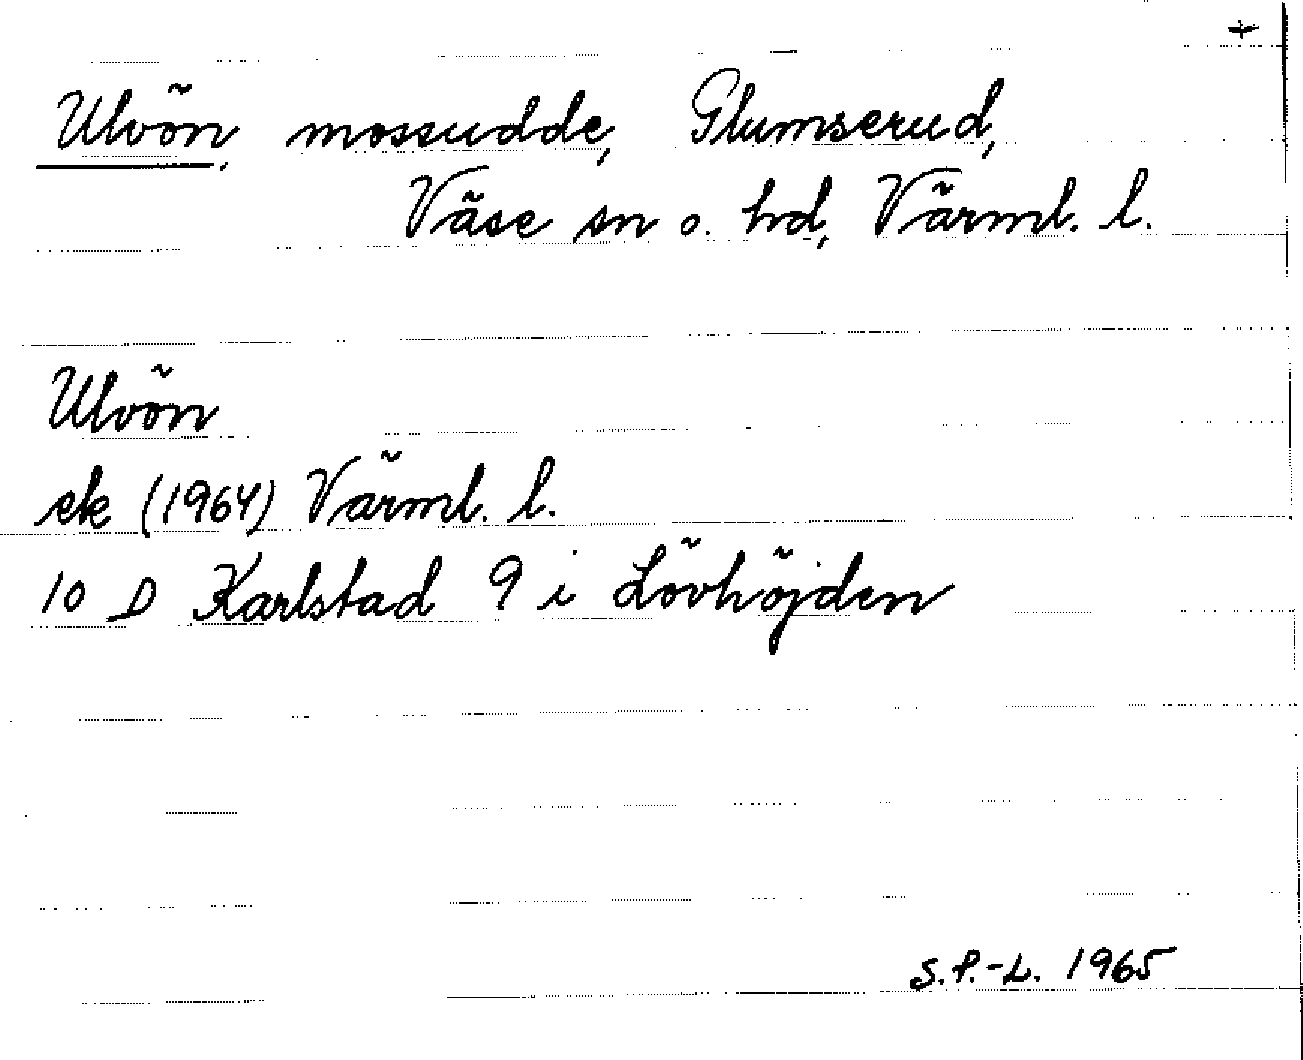 Ulvön, mossudde, Glumserud,
Väse sn o. hd, Värml. l.
Ulvön
ek (1964) Värml. l.
10 D Karlstad 9 i Lövhöjden
S.P.-L. 1965